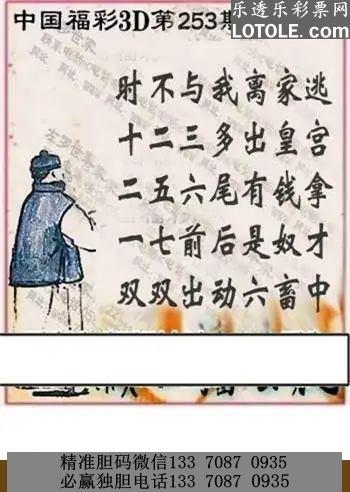 中国福彩3D第253期
乐透乐彩票网
LOTOLE.COM
时不与我离家逃
十二三多出皇宫
二五六尾有钱拿
一七前后是奴才
双双出动六畜中
精准胆码微信133 7087 0935
必赢独胆电话133 7087 0935